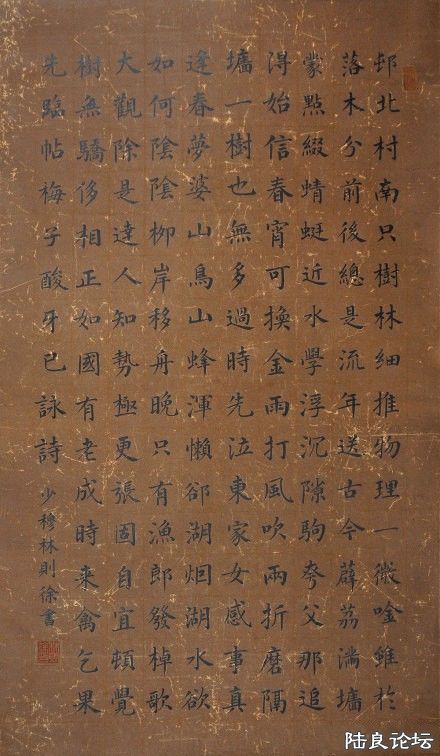 邨北村南只樹林細推物理一微唫雖於
落木分前後總是流年送古今薜荔滿墻
蒙點綴蜻蜓近水學浮沉隙駒夸父那追
得始信春宵可換金雨打風吹兩折磨隔
墻一樹也無多過時先泣東家女感事真
逢春夢婆山鳥山蜂渾懶郤湖烟湖水欲
如何陰陰柳岸移舟晚只有漁郎發棹歌
大觀除是達人知勢極更張固自宜頓覺
樹無驕侈相正如國有老成時来禽乞果
先臨帖梅子酸牙已詠詩
少穆林則徐書
陆良论坛